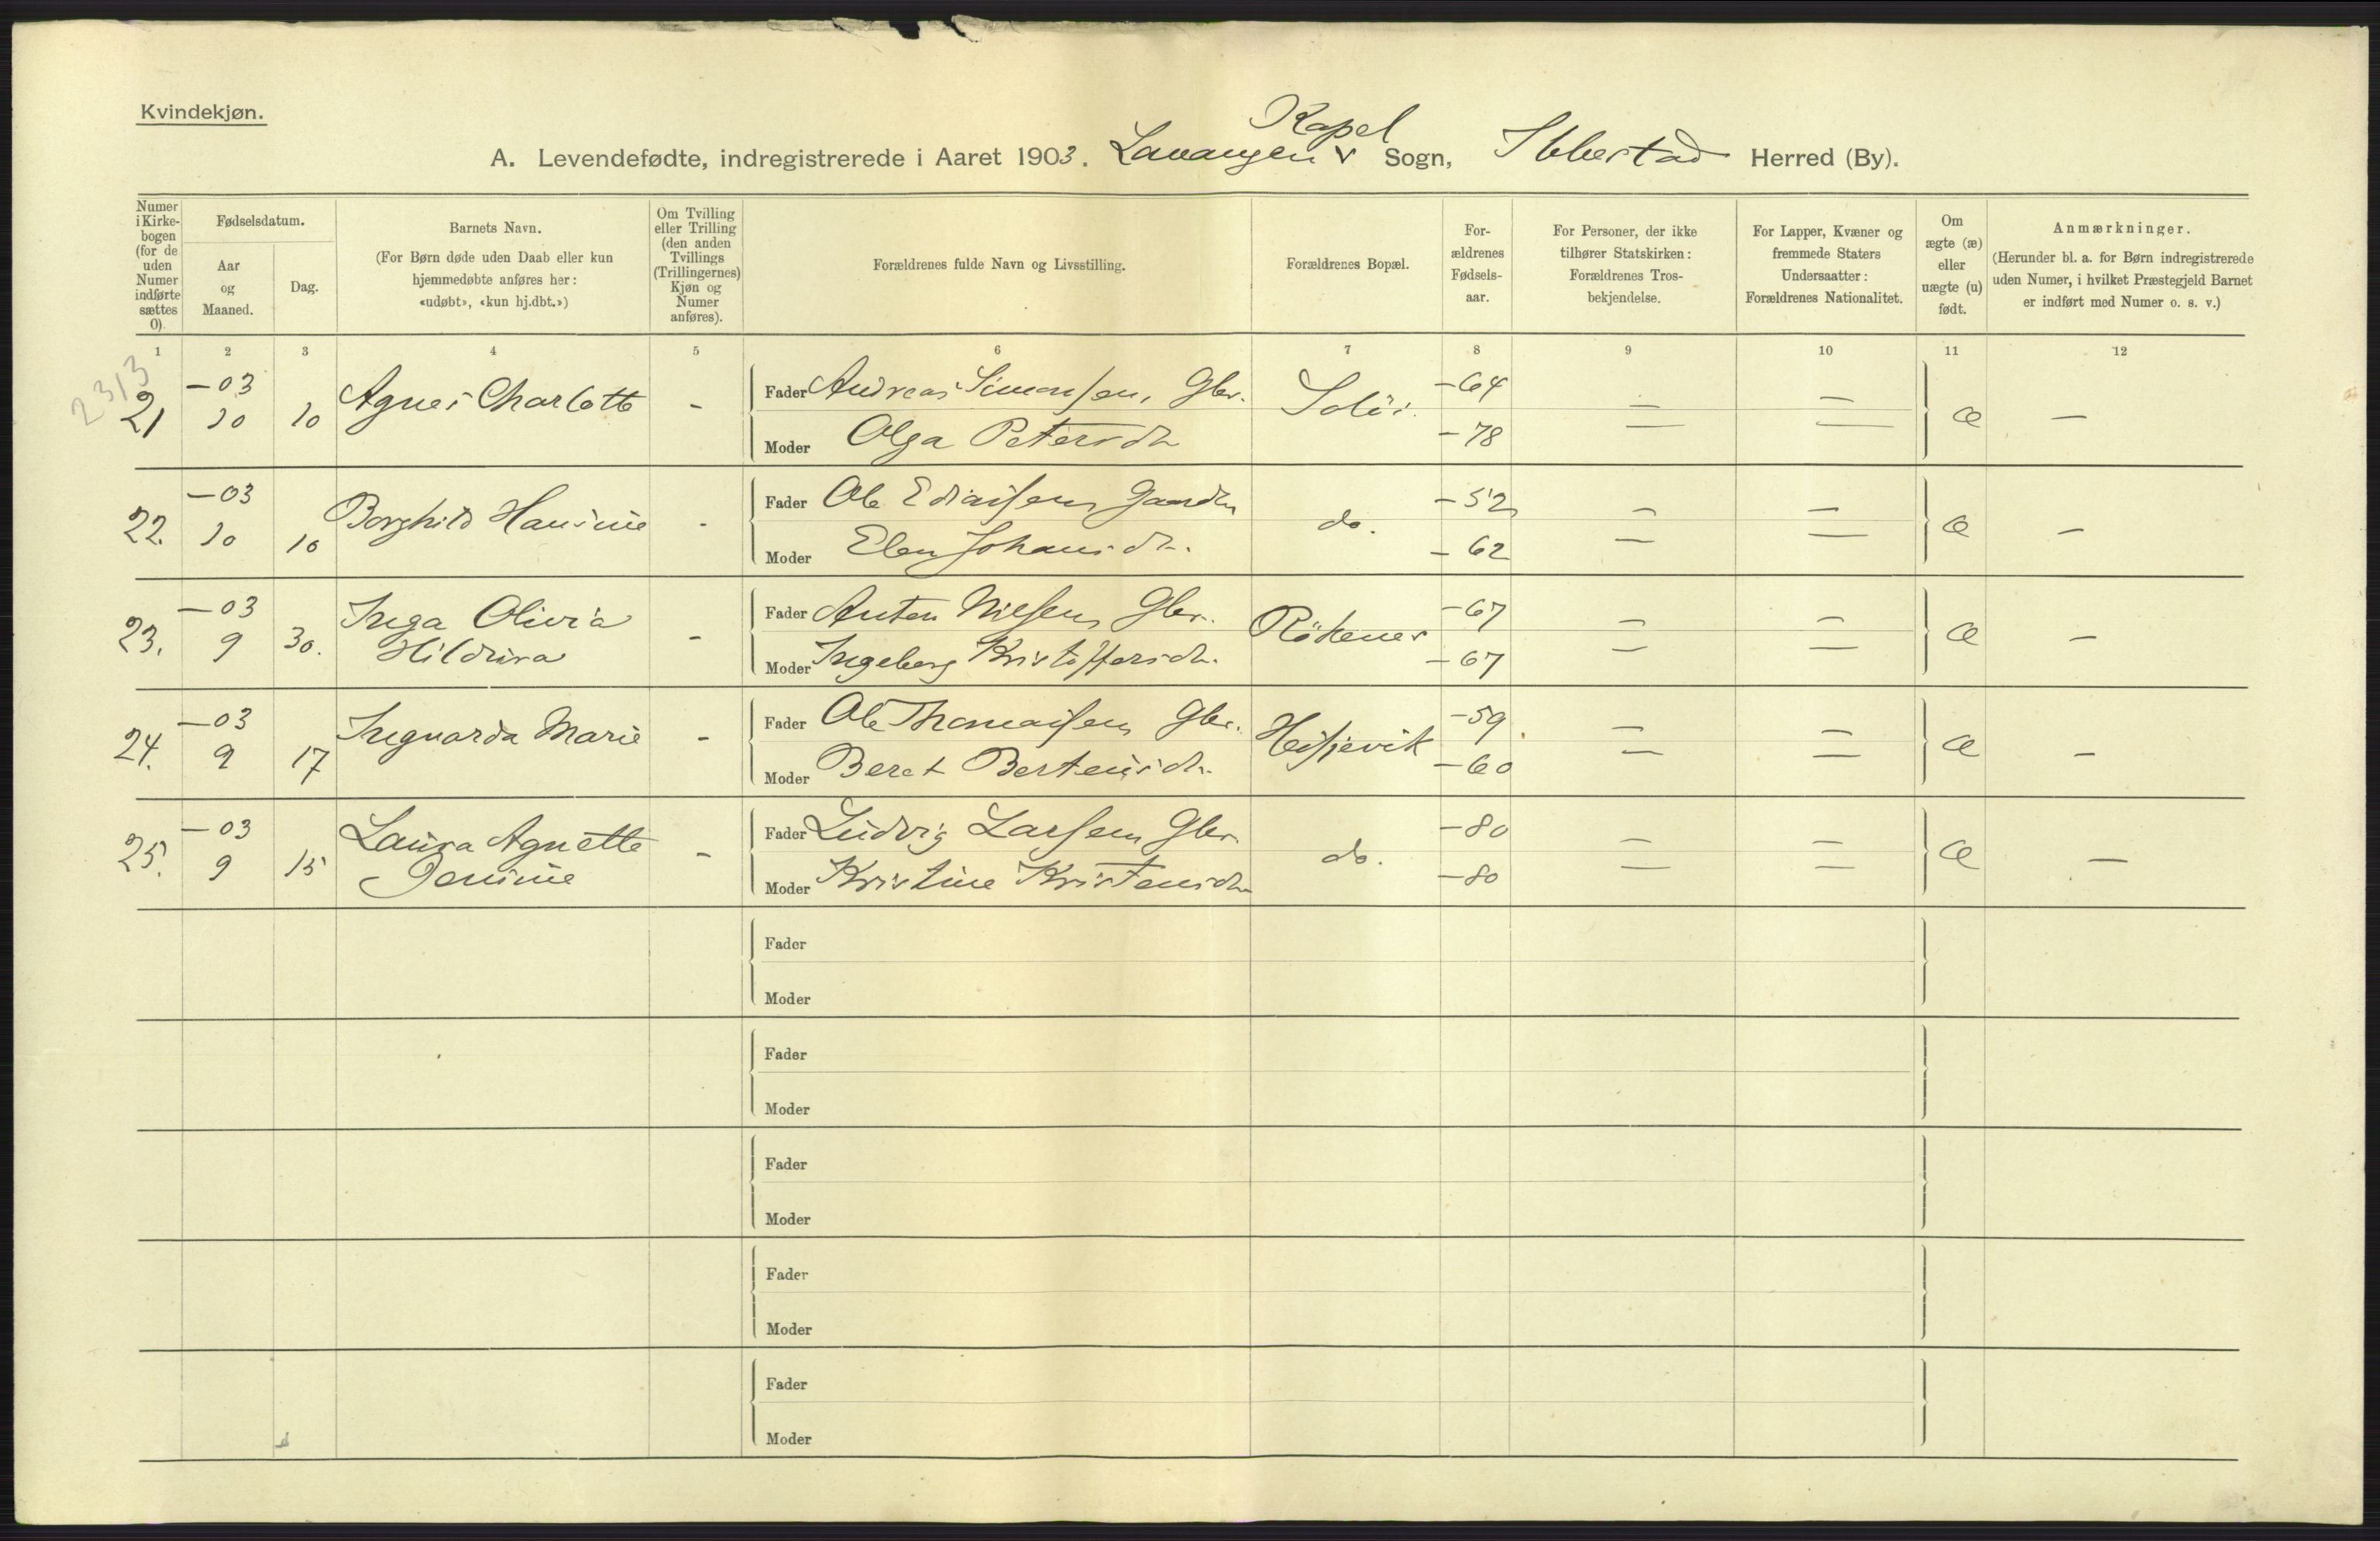 Kvindekjøn.
Kapel
A. Levendefødte, indregistrerede i Aaret 1903. Lavangen v Sogn, Ibbestad Herred (By).
Numer i Kirke-bogen (for de uden Numer indførte sættes 0).
Fødselsdatum.
Aar og Maaned.
Dag.
Barnets Navn.
(For Børn døde uden Daab eller kun hjemmedøbte anføres her: «udøbt», «kun hj.dbt.»)
Om Tvilling eller Trilling (den anden Tvillings (Trillingernes) Kjøn og Numer anføres).
Forældrenes fulde Navn og Livsstilling.
Forældrenes Bopæl.
For-ældrenes Fødsels-aar.
For Personer, der ikke tilhører Statskirken: Forældrenes Tros-bekjendelse.
For Lapper, Kvæner og fremmede Staters Undersaatter: Forældrenes Nationalitet.
Om ægte (æ) eller uægte (u) født.
Anmærkninger.
(Herunder bl. a. for Børn indregistrerede uden Numer, i hvilket Præstegjeld Barnet er indført med Numer o. s. v.)
1 2 3 4 5 6 7 8 9 10 11 12
2313
21 -03 10 10 Agnes Charlotte - Fader Andreas Simonsen, Gbr. -64 — — æ —
Moder Olga Petersdtr -78 — —
22. -03 10 10 Borghild Hansine - Fader Ole Ediassen Gaardbr do. -52 — — æ —
Moder Elen Johansdtr. -62 — —
23. -03 9 30. Inga Olivia Hildura - Fader Anton Nilsen Gbr. Rökenes -67 — — æ —
Moder Ingeborg Kristoffersdtr. -67 — —
24. -03 9 17 Ingvarda Marie - Fader Ole Thomassen Gbr. Hesjevik -59 — — æ —
Moder Beret Berteusdtr. -60 — —
25. -03 9 15 Laura Agnette Jensine - Fader Ludvig Larsen Gbr. do. -80 — — æ —
Moder Kristine Kristensdtr -80 — —
Fader
Moder
Fader
Moder
Fader
Moder
Fader
Moder
Fader
Moder